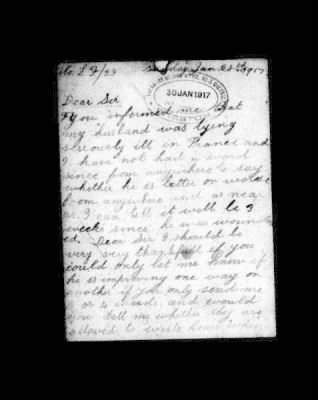 No. L 7/99 Sunday Jan 28th 1917
30 JAN 1917
PRESTON
Dear Sir
you informed me that
my husband was lying
seriously ill in France and
I have not had a word
since from anywhere to say
whether he is better or worse
from anywhere and as near
as I can tell it will be 3
weeks since he was wound
ed. Dear Sir I should be
very very thankfull if you
could only let me know if
he is improving one way or
another if you only send me
3 or 4 words. and would
you tell me whether they are
allowed to write home when